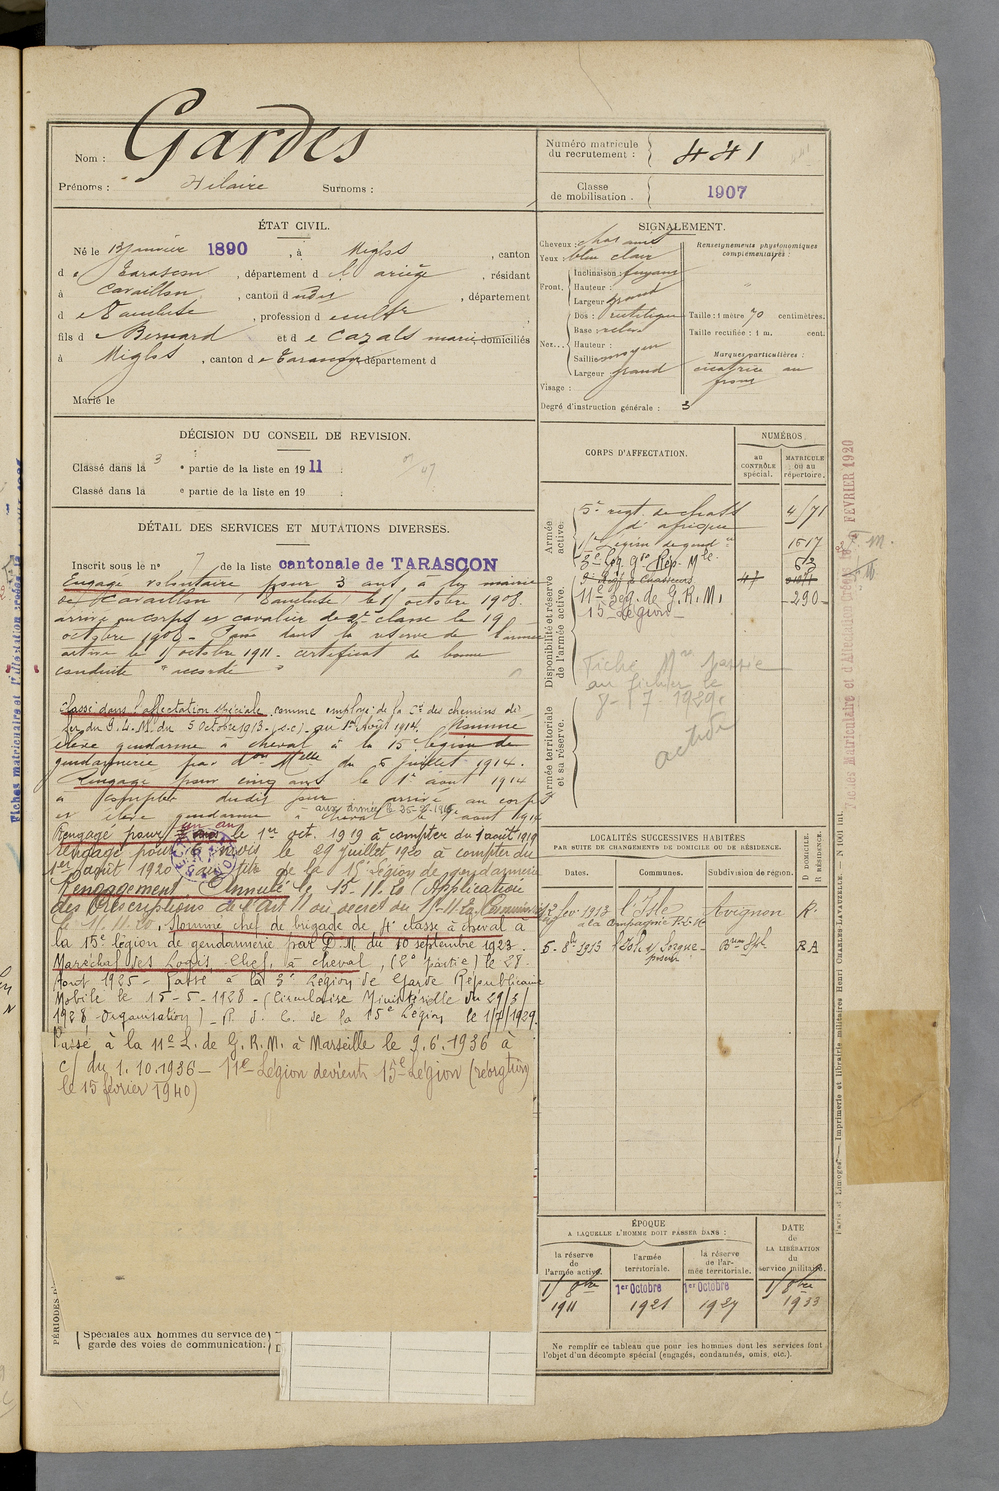 Nom : Gardes
Prénoms : Hilaire Surnoms :
Numéro matricule
du recrutement : 441
Classe
de mobilisation . 1907
ÉTAT CIVIL.
Né le 13 janvier 1890 , à Miglos , canton
de Tarascon , département de l'ariège , résidant
à Cavaillon , canton dudit , département
de Vaucluse , profession d
fils de Bernard et de Cazals marie domiciliés
à Miglos , canton de Tarascon département d
Marié le
SIGNALEMENT.
Cheveux :
Yeux : bleu clair
Front. Inclinaison : fuyant
Hauteur :
Largeur grand
Nez... Dos : rectiligne
Base : relevé
Hauteur :
Saillie moyen
Largeur grand
Visage :
Degré d'instruction générale : 3
Renseignements physionomiques
complémentaires :
Taille : 1 mètre 70 centimètres.
Taille rectifiée : 1 m. cent.
Marques particulières :
cicatrice au
front
DÉCISION DU CONSEIL DE REVISION.
Classé dans la 3e partie de la liste en 1911 :
Classé dans la e partie de la liste en 19 :
DÉTAIL DES SERVICES ET MUTATIONS DIVERSES.
Inscrit sous le n° 7 de la liste cantonale de TARASCON
Engagé volontaire pour 3 ans à la mairie
de Cavaillon (Vaucluse) le 19 octobre 1908.
arrivé au corps et cavalier de 2e classe le 19
octobre 1908 - Passé dans la réserve de l'armée
active le 19 octobre 1911 - certificat de bonne
conduite "accordé"
Classé dans l'affectation spéciale comme employé de la Cie des chemins de
fer du P.L.M. du 5 Octobre 1913 (s.c) au 1er Août 1914. Nommé
élève gendarme à cheval à la 15e légion de
gendarmerie par don Melle du 6 juillet 1914.
Rengagé pour cinq ans le 1er août 1914
à compter dudit jour arrivé au corps
et élève gendarme à cheval le 9 aout 1914
aux armées le 25-2-1916.
Rengagé pour un an le 1er oct. 1919 à compter du 1 août 1919
rengagé pour 6 mois le 29 juillet 1920 à compter du
1er août 1920 de la 15 Légion de gendarmerie
Rengagement Annulé le 15-11-20 (Application
des Prescriptions de l'Art 11 du décret du Commissionné
le 11.11.20. Nommé chef de brigade de 4e classe à cheval à
la 15e légion de gendarmerie par D.M. du 10 septembre 1923.
Maréchal des Logis Chef, à cheval, (2e partie) le 28
Aout 1925 - Passé à la 3e Légion de Garde Républicaine
Mobile le 15-5-1928 - (Circulaire Ministérielle du 29/3/
1928 Organisation) - P. d. C. de la 15e Légion le 1/7/1929.
Passé à la 11e L. de G. R. M. à Marseille le 9.6.1936 à
c/ du 1.10.1936 - 11e Légion devient 15e Légion (réorgtion)
le 15 février 1940)
PÉRIODES D'
Spéciales aux hommes du service de
garde des voies de communication.
CORPS D'AFFECTATION.
NUMÉROS
au
CONTRÔLE
spécial.
MATRICULE
ou au
répertoire.
Armée
active.
5e régt de chass 4171
d'afrique
15e Légion de gend ie 1617
3e Lég. Gde Rép. Mle
Disponibilité et réserve
de l'armée active.
11e Lég. de G. R. M. 290
15e Légion
Armée territoriale
et sa réserve.
Fiche Mle passée
au fichier le
8-17-1929.
active
LOCALITÉS SUCCESSIVES HABITÉES
PAR SUITE DE CHANGEMENTS DE DOMICILE OU DE RÉSIDENCE.
Dates. Communes. Subdivision de région. D DOMICILE. R RÉSIDENCE.
12 fev 1913 l'Isle Avignon R.
à la Compagnie P.L.M.
5-8bre 1913 Isle s/ Sorgue RA
ÉPOQUE
A LAQUELLE L'HOMME DOIT PASSER DANS :
la réserve
de
l'armée active.
l'armée
territoriale.
la réserve
de l'ar-
mée territoriale.
DATE
de
LA LIBÉRATION
du
service militaire.
19 8bre 1er Octobre 1er Octobre 19 8bre
1911 1921 1927 1933
Ne remplir ce tableau que pour les hommes dont les services font
l'objet d'un décompte spécial (engagés, condamnés, omis, etc.).
Paris et Limoges. — Imprimerie et librairie militaires Henri CHARLES-LAVAUZELLE. — N 1001 int.